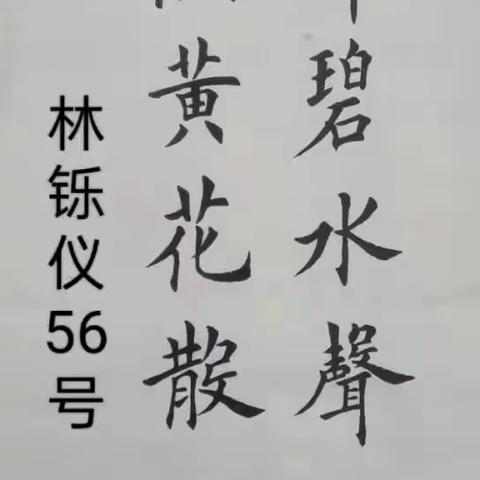 碧水聲
黄花散
林铄仪56号